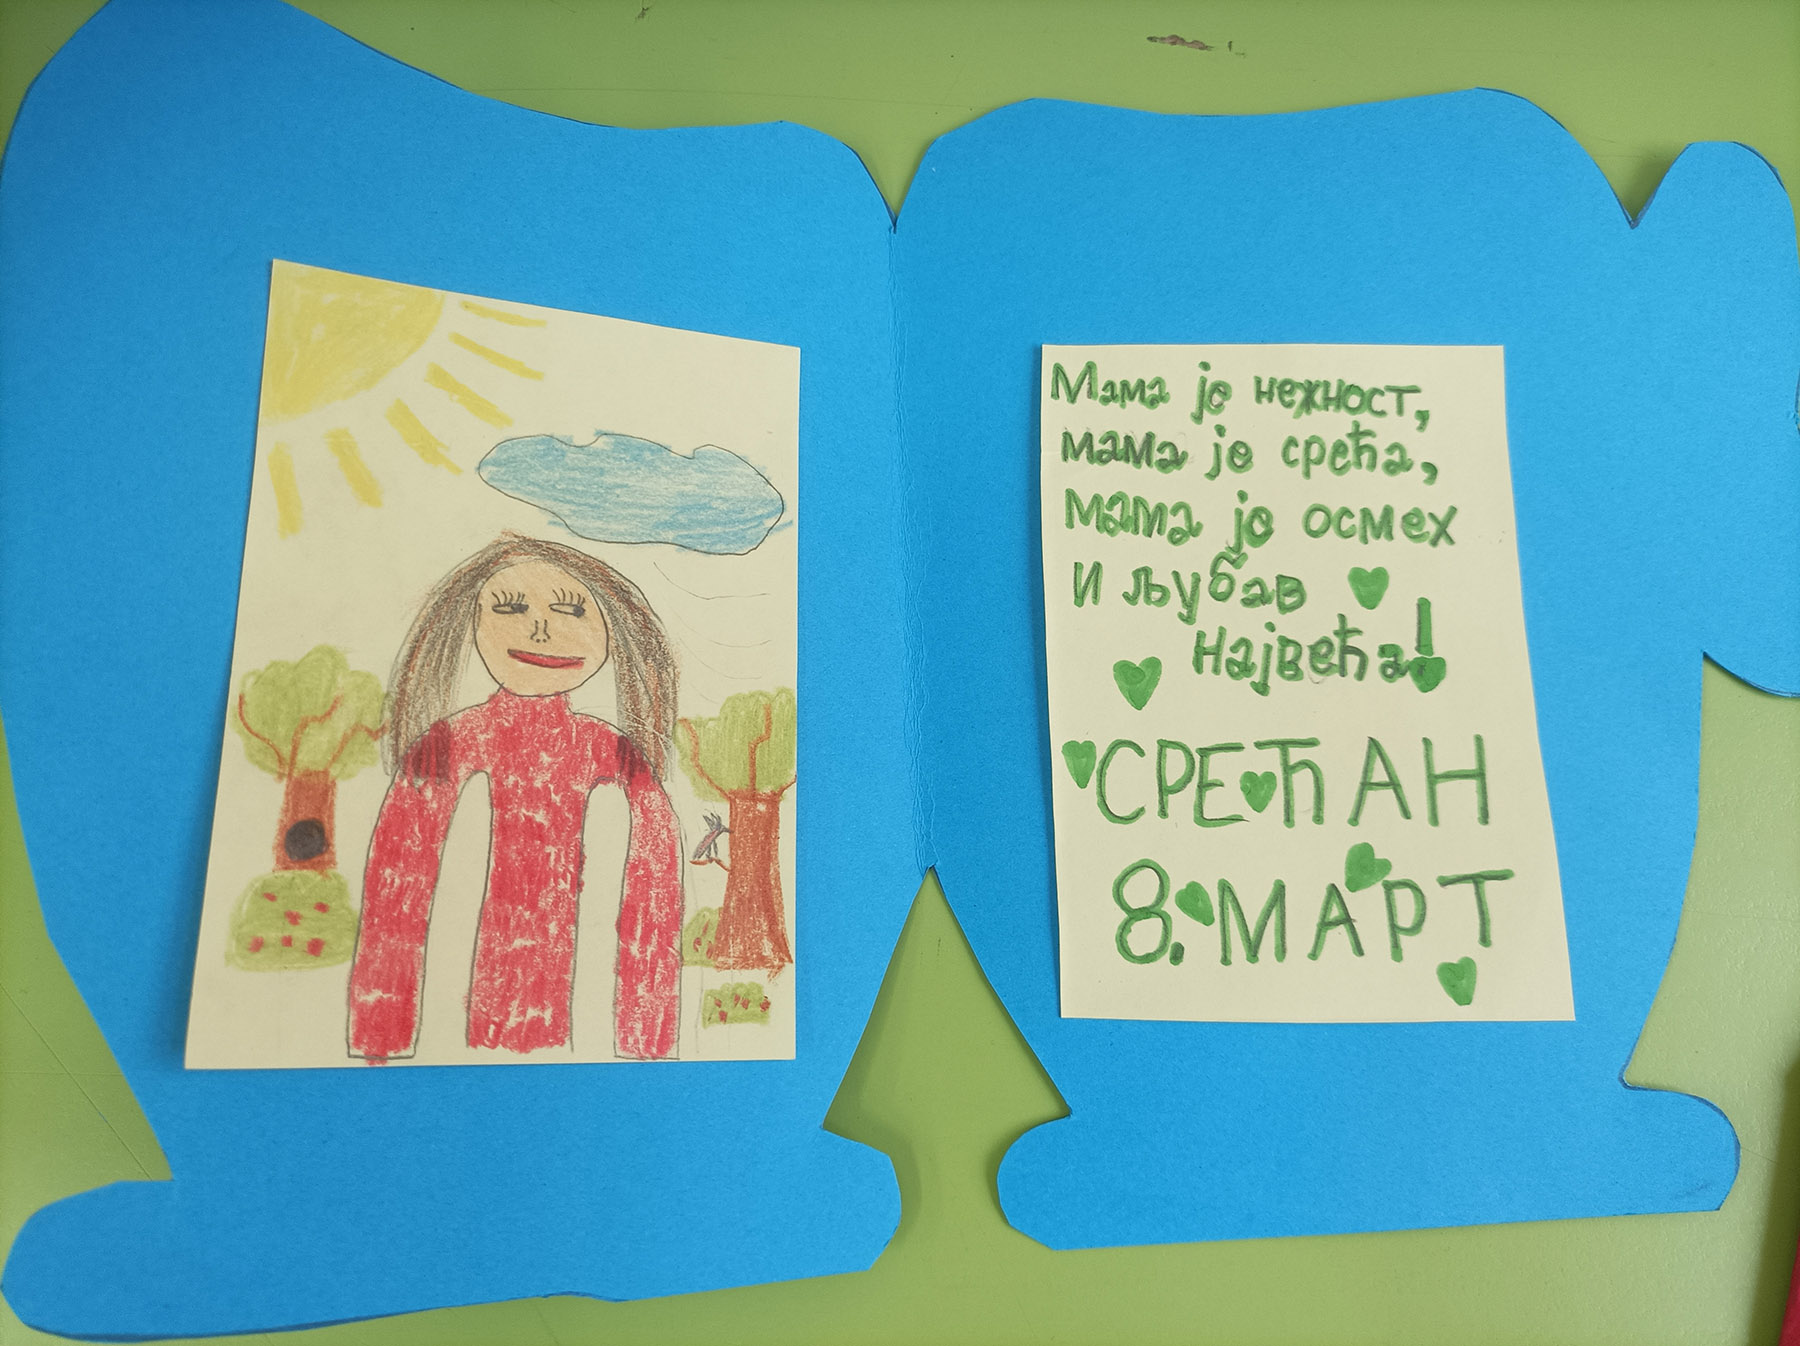 Мама је нежност,
мама је срећа,
мама је осмех
и љубав
највећа!
СРЕЋАН
8. МАРТ